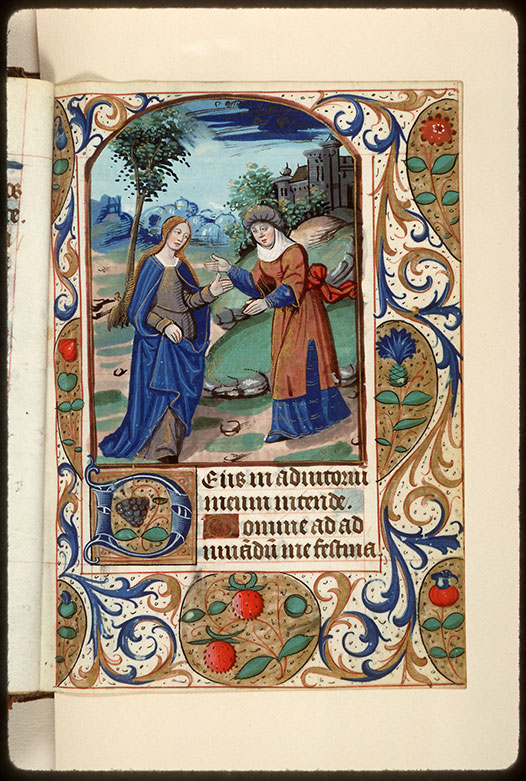 Deus in adiutoriū
meum intende.
Domine ad ad
iuuādū me festina.